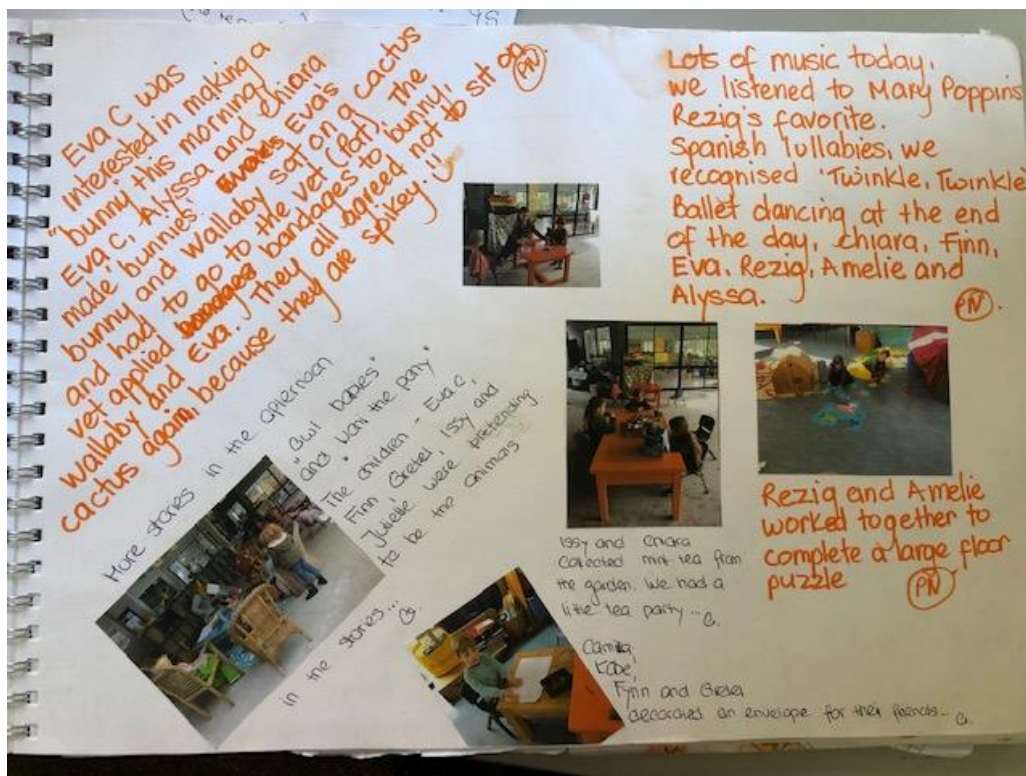 Eva C was
interested in making a
"bunny" this morning.
Eva C, Alyssa and Chiara
made 'bunnies'. Eva's
bunny and Wallaby sat on a cactus
and had to go to the vet (Pat). The
vet applied bandages to bunny,
Wallaby and Eva. They all agreed not to sit on
cactus again, because they are spikey. !!
PN
Lots of music today,
we listened to Mary Poppins
Rezig's favorite.
Spanish lullabies, we
recognised 'Twinkle, Twinkle'
Ballet dancing at the end
of the day, Chiara, Finn,
Eva, Rezig, Amelie and
Alyssa.
PN.
More stories in the afternoon
"Owl babies"
and "the party"
The children - Eva C,
Finn Gretel, Issy and
Juliette were pretending
to be the animals
in the stories... C.
Issy and Chiara
collected mint tea from
the garden. We had a
little tea party... C.
Rezig and Amelie
worked together to
complete a large floor
puzzle
PN
Camilla,
Fynn and Gretel
decorated an envelope for their friends... C.